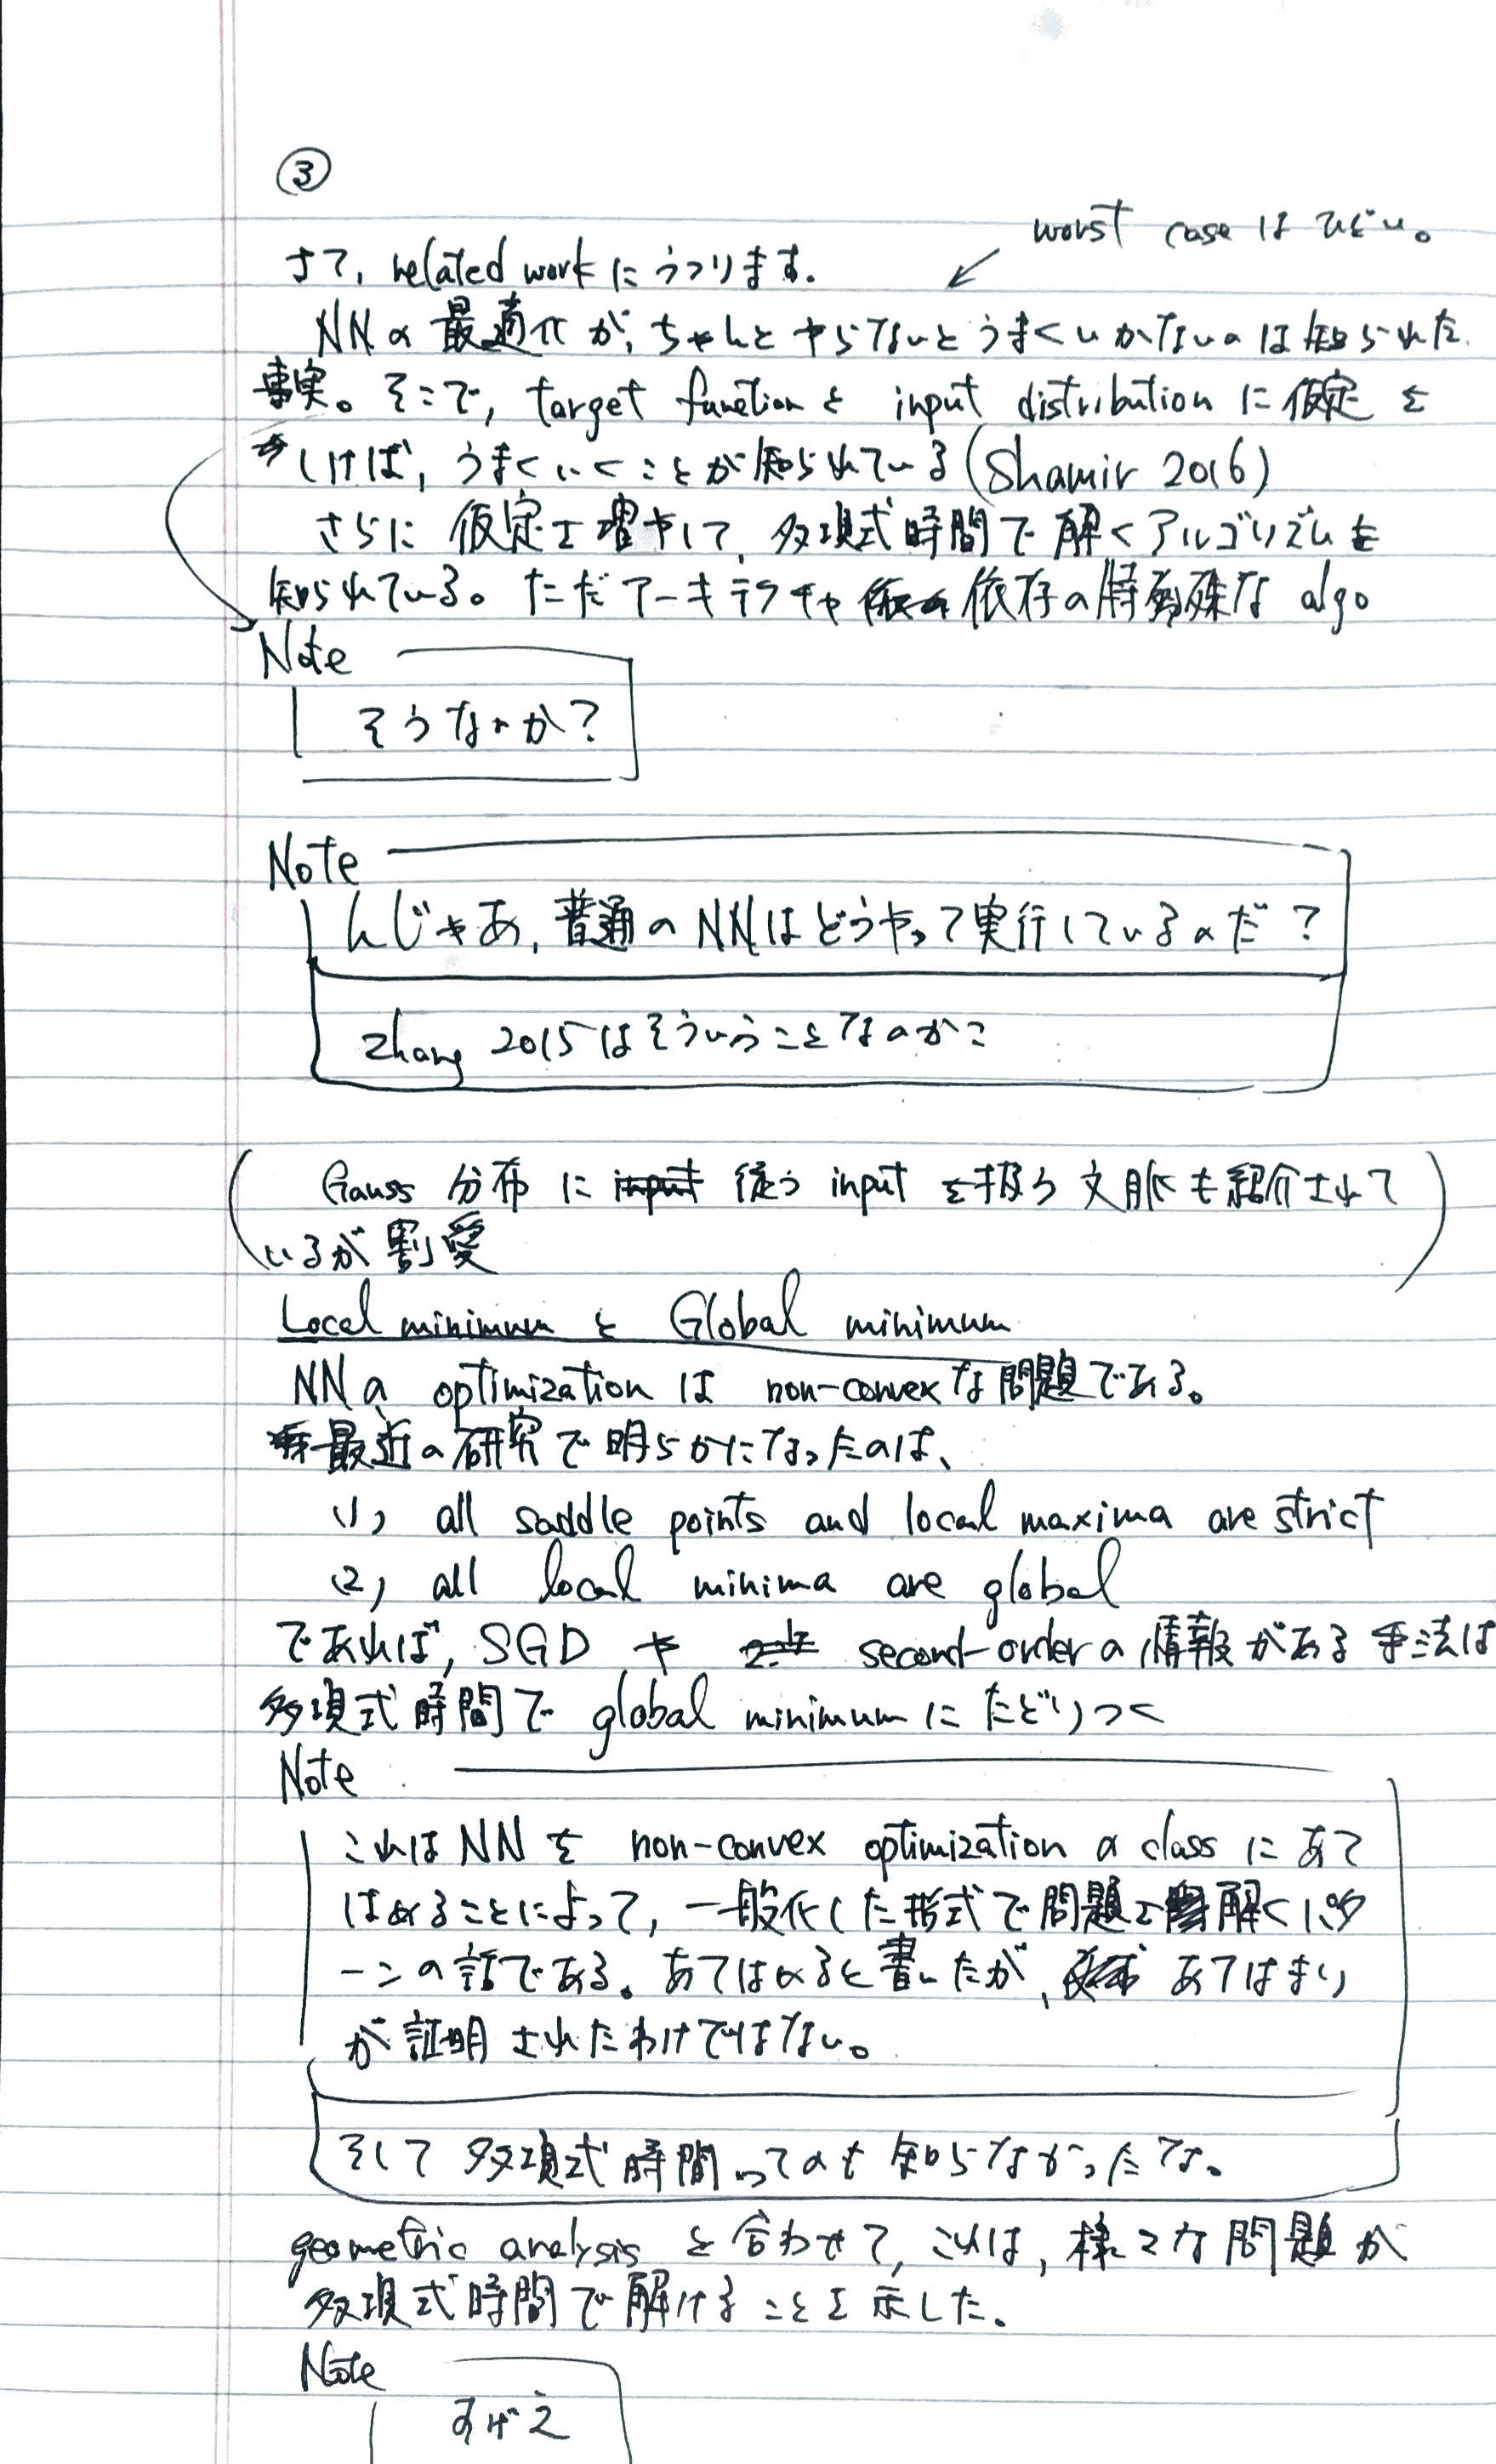 ③
worst case はひどい。
さて, related work にうつります.
NNの最適化が, ちゃんとやらないとうまくいかないのは知られた
事実。そこで, target functionと input distribution に仮定を
しけば, うまくいくことが知られている(Shamir 2016)
さらに 仮定を増やして, 多項式時間で解くアルゴリズムを
知られている。ただアーキテクチャ依存の特殊な algo
Note
そうなのか?
Note
んじゃあ, 普通の NNはどうやって実行しているのだ?
Zhang 2015はそういうことなのかこ
(Gauss 分布に 従う input を扱う文脈も紹介されて
いるが割愛)
Local minimum と Global minimum
NNの optimization は non-convexな問題である。
最近の研究で明らかになったのは、
(1) all saddle points and local maxima are strict
(2) all local minima are global
であれば, SGD や second-orderの情報がある手法は
多項式時間で global minimumに たどりつく
Note
これは NN を non-convex optimization の class にあて
はめることによって, 一般化した形式で問題を解くパタ
ーンの話である。あてはめると書いたが, あてはまり
が証明されたわけではない。
そして多項式時間ってのも知らなかったな。
geometric analysis と合わせて, これは, 様々な問題が
多項式時間で解けることを示した。
Note
すげえ